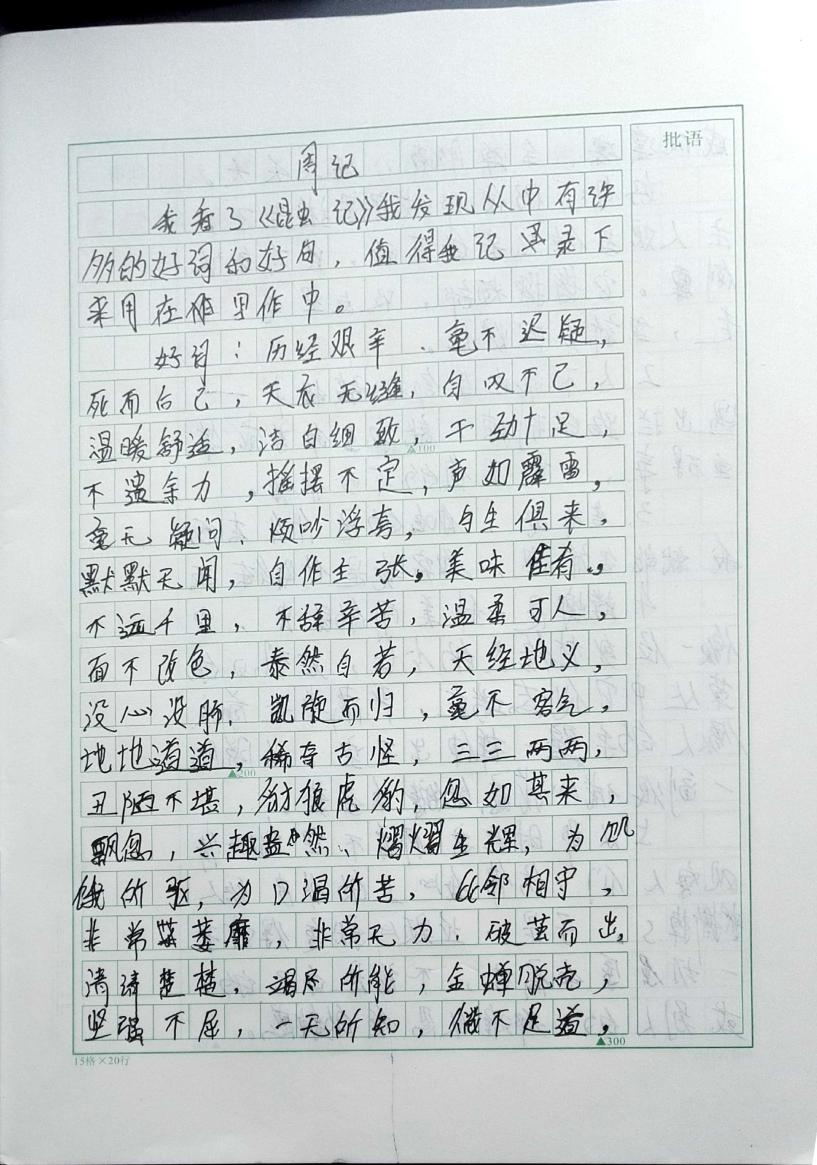 周记
批语
我看了《昆虫记》我发现从中有许
多的好词和好句，值得我记录下
来用在作中。
好词：历经艰辛、毫不迟疑，
死而后已，天衣无缝，自叹不已，
温暖舒适，洁白细致，干劲十足，
▲100
不遗余力，摇摆不定，声如霹雷，
毫无疑问、烦吵浮夸，与生俱来，
默默无闻，自作主张。美味佳肴。，
不远千里，不辞辛苦，温柔可人，
面不改色，泰然自若，天经地义，
没心没肺、凯旋而归，毫不客气，
地地道道，稀奇古怪，三三两两，
▲200
丑陋不堪，豺狼虎豹，忽如其来，
飘忽，兴趣盎然、熠熠生辉，为饥
饿所驱，为口渴所苦，比邻相守，
非常萎靡，非常无力，破茧而出。
清清楚楚，竭尽所能，金蝉脱壳，
坚强不屈，一无所知，微不足道，
▲300
15格×20行